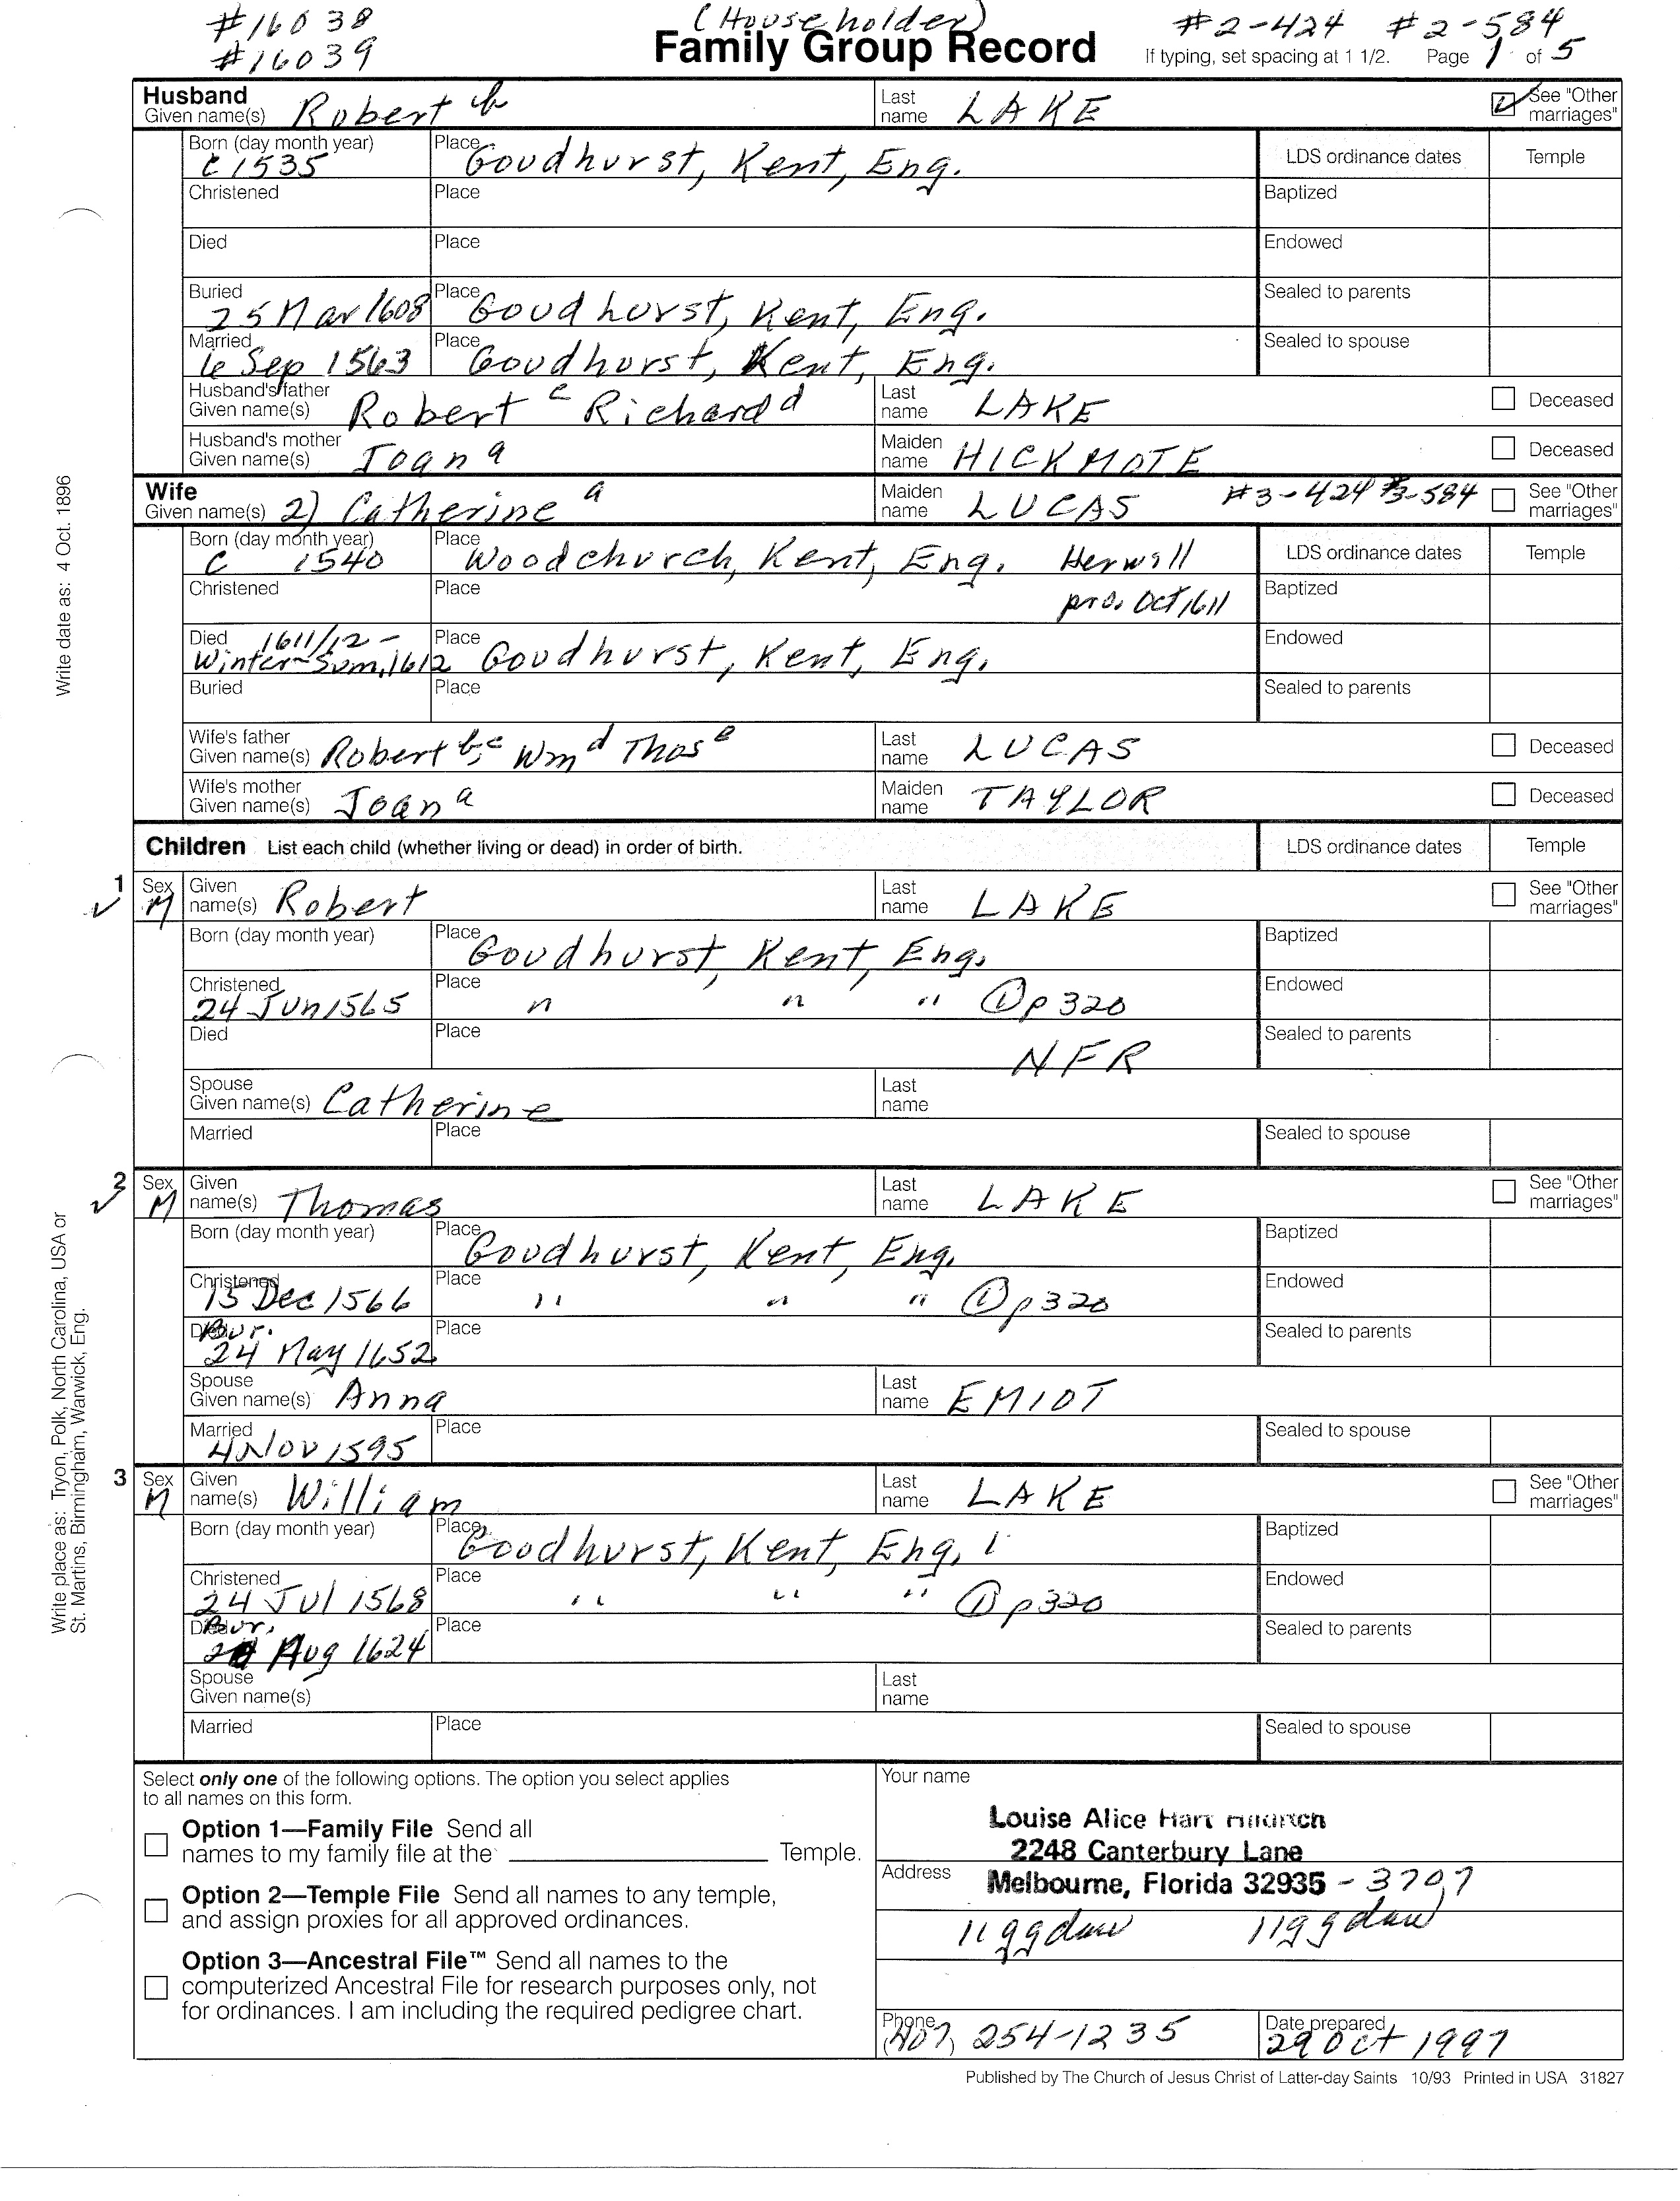 #16038 (Householder) #2-424 #2-584
#16039 Family Group Record If typing, set spacing at 1 1/2. Page 1 of 5
Husband
Given name(s) Robert b Last name LAKE See "Other marriages"
Born (day month year) C 1535 Place Goudhurst, Kent, Eng. LDS ordinance dates Temple
Christened Place Baptized
Died Place Endowed
Buried 25 Mar 1608 Place Goudhurst, Kent, Eng. Sealed to parents
Married 6 Sep 1563 Place Goudhurst, Kent, Eng. Sealed to spouse
Husband's father Given name(s) Robert c Richard d Last name LAKE Deceased
Husband's mother Given name(s) Joan a Maiden name HICKMOTE Deceased
Wife
Given name(s) 2) Catherine a Maiden name LUCAS #3-424 #3-584 See "Other marriages"
Born (day month year) C 1540 Place Woodchurch, Kent, Eng. Her will LDS ordinance dates Temple
Christened Place pro. Oct 1611 Baptized
Died 1611/12 - Winter-Sum, 1612 Place Goudhurst, Kent, Eng. Endowed
Buried Place Sealed to parents
Wife's father Given name(s) Robert b,c Wm d Thos e Last name LUCAS Deceased
Wife's mother Given name(s) Joan a Maiden name TAYLOR Deceased
Children List each child (whether living or dead) in order of birth. LDS ordinance dates Temple
1 Sex M Given name(s) Robert Last name LAKE See "Other marriages"
Born (day month year) Place Goudhurst, Kent, Eng. Baptized
Christened 24 Jun 1565 Place " " " ① p 320 Endowed
Died Place NFR Sealed to parents
Spouse Given name(s) Catherine Last name
Married Place Sealed to spouse
2 Sex M Given name(s) Thomas Last name LAKE See "Other marriages"
Born (day month year) Place Goudhurst, Kent, Eng. Baptized
Christened 15 Dec 1566 Place " " " ① p 320 Endowed
Bur. 24 May 1652 Place Sealed to parents
Spouse Given name(s) Anna Last name EMIOT
Married 4 Nov 1595 Place Sealed to spouse
3 Sex M Given name(s) William Last name LAKE See "Other marriages"
Born (day month year) Place Goodhurst, Kent, Eng. Baptized
Christened 24 Jul 1568 Place " " " ① p 320 Endowed
Bur. Aug 1624 Place Sealed to parents
Spouse Given name(s) Last name
Married Place Sealed to spouse
Select only one of the following options. The option you select applies
to all names on this form.
Option 1—Family File Send all
names to my family file at the Temple.
Option 2—Temple File Send all names to any temple,
and assign proxies for all approved ordinances.
Option 3—Ancestral File™ Send all names to the
computerized Ancestral File for research purposes only, not
for ordinances. I am including the required pedigree chart.
Your name
Louise Alice Hart
2248 Canterbury Lane
Address Melbourne, Florida 32935 - 3707
11ggdau 11ggdau
Phone (407) 254-1235 Date prepared 29 Oct 1997
Published by The Church of Jesus Christ of Latter-day Saints 10/93 Printed in USA 31827
Write date as: 4 Oct. 1896
Write place as: Tryon, Polk, North Carolina, USA or
St. Martins, Birmingham, Warwick, Eng.